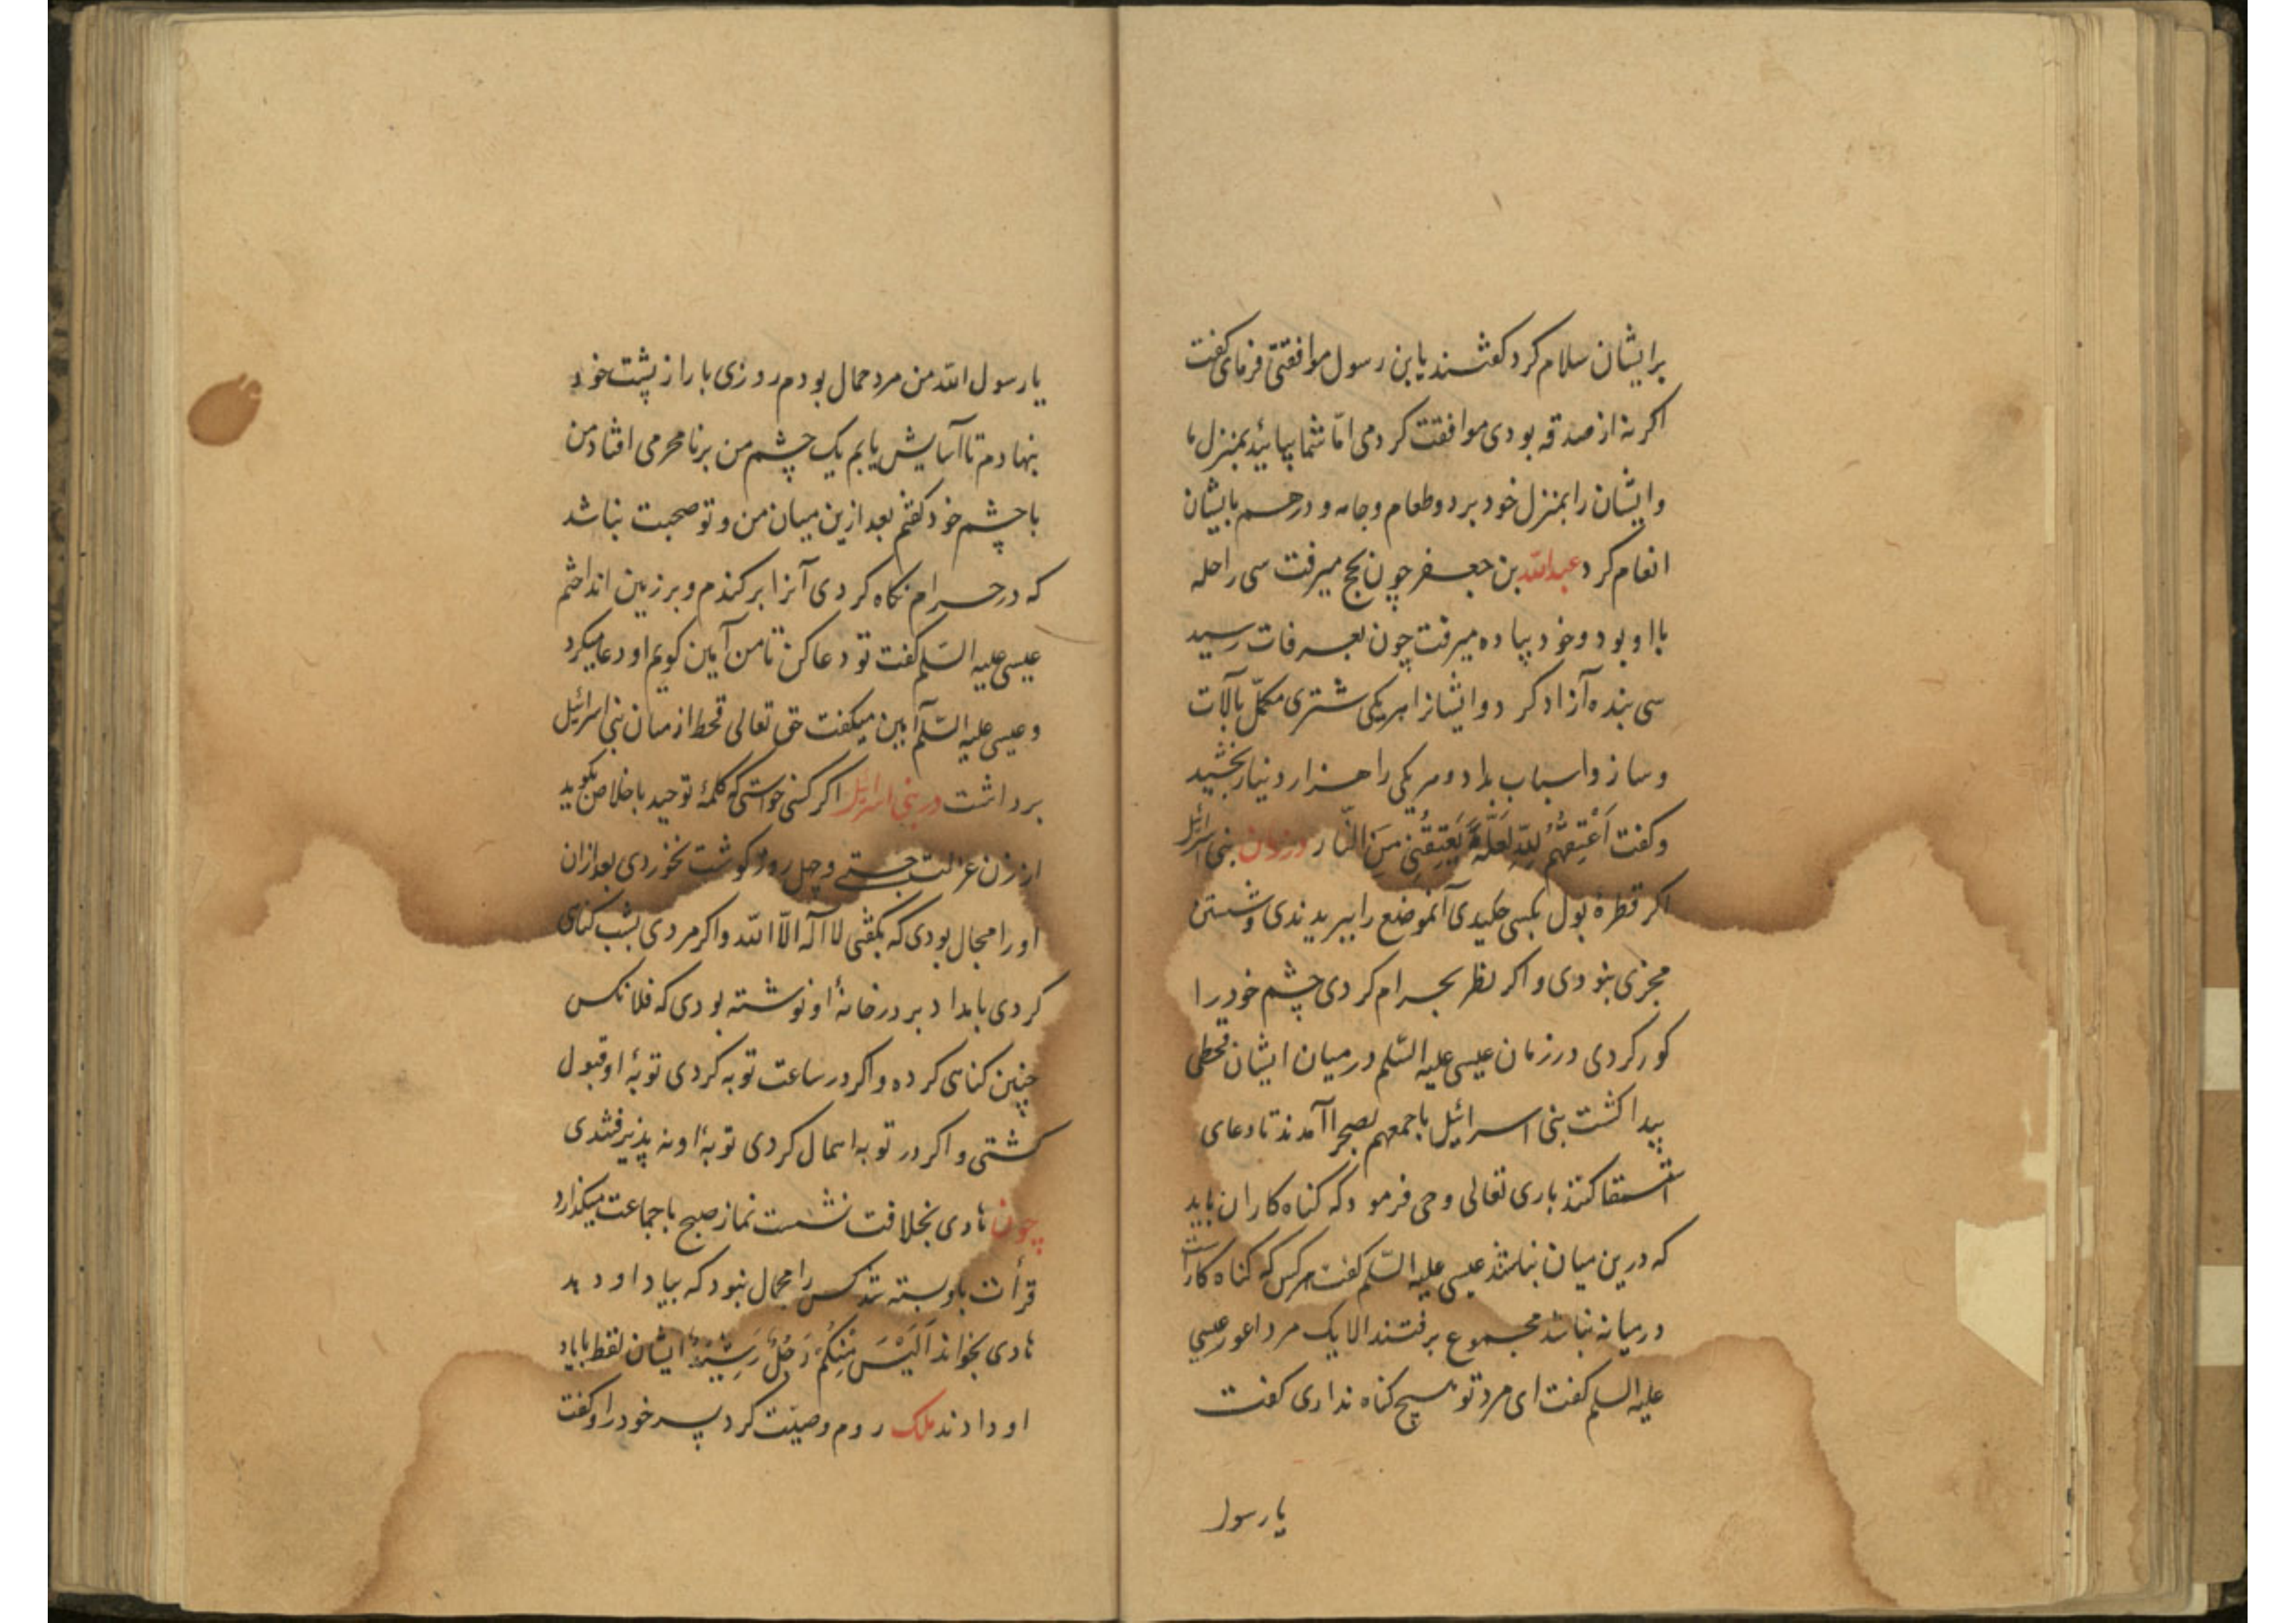 برایشان سلام کرد کفتند یابن رسول موافقتی فرمای کفت
اکر نه از صدقه بودی موافقت کردمی امّا شما بیائید بمنزل ما
وایشان را بمنزل خود برد وطعام وجامه و درهم بایشان
انعام کرد عبدالله بن جعفر چون بحج میرفت سی راحله
با او بود وخود پیاده میرفت چون بعرفات رسید
سی بنده آزاد کرد وایشانرا هریکی شتری مکمّل بآلات
وساز واسباب بداد وهریکی را هزار دینار بخشید
وکفت اَعْتِقُهُمْ لِلّهِ لَعَلَّهُ یُعْتِقُنِی مِنَ النّار در زمان بنی اسرائیل
اکر قطرهٔ بول بکسی چکیدی آنموضع را ببریدندی وشستن
مجزی نبودی واکر نظر بحرام کردی چشم خود را
کور کردی در زمان عیسی علیه السّلم در میان ایشان قحطی
پیدا کشت بنی اسرائیل باجمعهم بصحرا آمدند تا دعای
استسقا کنند باری تعالی وحی فرمود که کناه کاران باید
که درین میان نباشند عیسی علیه السّلم کفت هرکس که کناه کارست
در میانه نباشد مجموع برفتند الا یک مرد اعور عیسی
علیه السلم کفت ای مرد تو هیچ کناه نداری کفت
یا رسول
یا رسول الله من مرد حمال بودم روزی بار از پشت خود
بنهادم تا آسایش یابم یک چشم من بر نامحرمی افتاد من
با چشم خود کفتم بعد ازین میان من و تو صحبت نباشد
که در حرام نکاه کردی آنرا برکندم و بر زمین انداختم
عیسی علیه السّلم کفت تو دعا کن تا من آمین کویم او دعا میکرد
و عیسی علیه السّلم آمین میکفت حق تعالی قحط از میان بنی اسرائیل
برداشت در بنی اسرائیل اکر کسی خواستی که کلمهٔ توحید باخلاص بکوید
از زن عزلت جستی وچهل روز کوشت نخوردی بعد ازان
او را مجال بودی که بکفتی لا اله الّا الله واکر مردی بشب کناهی
کردی بامداد بر در خانهٔ او نوشته بودی که فلانکس
چنین کناهی کرده واکر در ساعت توبه کردی توبهٔ او قبول
کشتی و اکر در توبه اهمال کردی توبهٔ او نه پذیرفتندی
چون هادی بخلافت نشست نماز صبح با جماعت میکذارد
قرأت باو بسته شد کس را مجال نبود که بیاد او دهد
هادی بخواند اَلَیْسَ مِنْکُمْ رَجُلٌ رَشِیدٌ ایشان لفظ بایاد
او دادند ملک روم وصیّت کرد پسر خود را وکفت